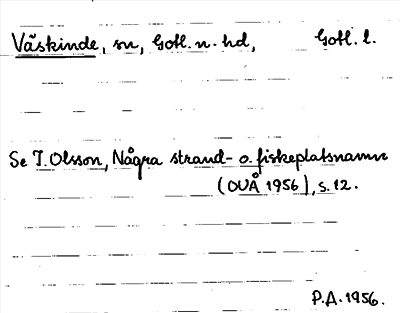 Väskinde, sn, Gotl. n. hd, Gotl. l.
Se I. Olsson, Några strand- o. fiskeplatsnamn
(OUÅ 1956), s. 12.
P.A. 1956.